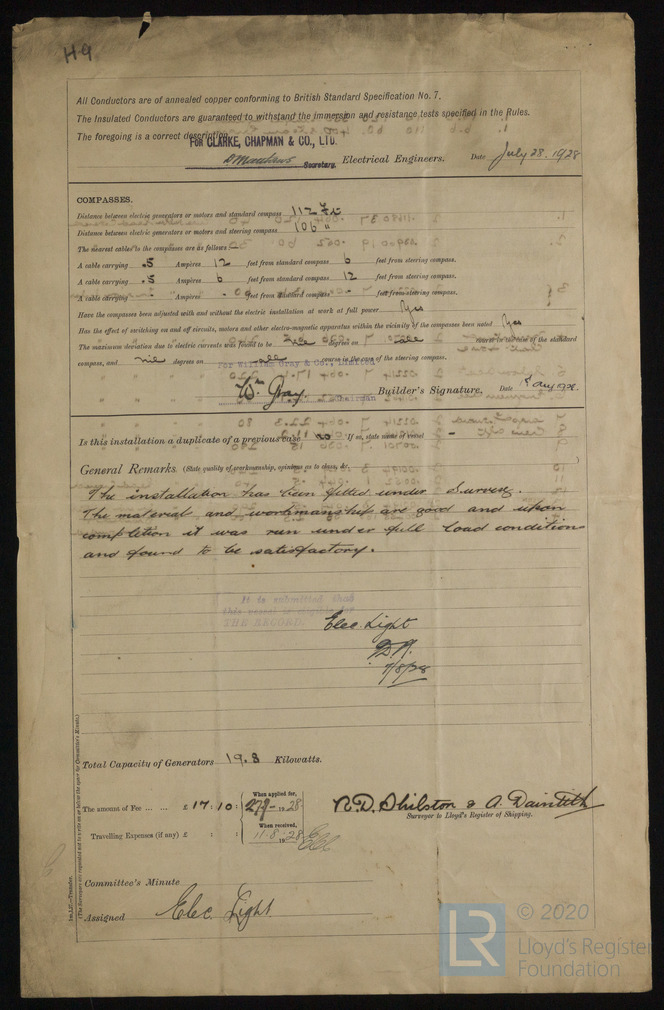 H9
All Conductors are of annealed copper conforming to British Standard Specification No. 7.
The Insulated Conductors are guaranteed to withstand the immersion and resistance tests specified in the Rules.
The foregoing is a correct description.
FOR CLARKE, CHAPMAN & CO., LTD.
Secretary. Electrical Engineers. Date July 28. 1928
COMPASSES.
Distance between electric generators or motors and standard compass 112 Ft
Distance between electric generators or motors and steering compass 106 "
The nearest cables to the compasses are as follows:—
A cable carrying .5 Ampères 12 feet from standard compass 6 feet from steering compass.
A cable carrying .5 Ampères 6 feet from standard compass 12 feet from steering compass.
A cable carrying - Ampères - feet from standard compass - feet from steering compass.
Have the compasses been adjusted with and without the electric installation at work at full power Yes
Has the effect of switching on and off circuits, motors and other electro-magnetic apparatus within the vicinity of the compasses been noted Yes
The maximum deviation due to electric currents was found to be nil degrees on all course in the case of the standard
compass, and nil degrees on all course in the case of the steering compass.
For William Gray & Co., Limited,
Wm Gray. Chairman Builder's Signature. Date 1st Aug 1928.
Is this installation a duplicate of a previous case no If so, state name of vessel -
General Remarks. (State quality of workmanship, opinions as to class, &c.
The installation has been fitted under Survey.
The material and workmanship are good and upon
completion it was run under full load conditions
and found to be satisfactory.
It is submitted that
this vessel is eligible for
THE RECORD.
Elec. Light
7/8/28
Total Capacity of Generators 19.8 Kilowatts.
The amount of Fee ... ... £ 17 : 10 :
When applied for,
1928
When received,
11.8.1928
Travelling Expenses (if any) £ : :
R.D. Shilston & A. Dainteth
Surveyor to Lloyd's Register of Shipping.
Committee's Minute
Assigned Elec. Light
(The Surveyors are requested not to write on or below the space for Committee's Minute.)
LR
© 2020
Lloyd's Register
Foundation